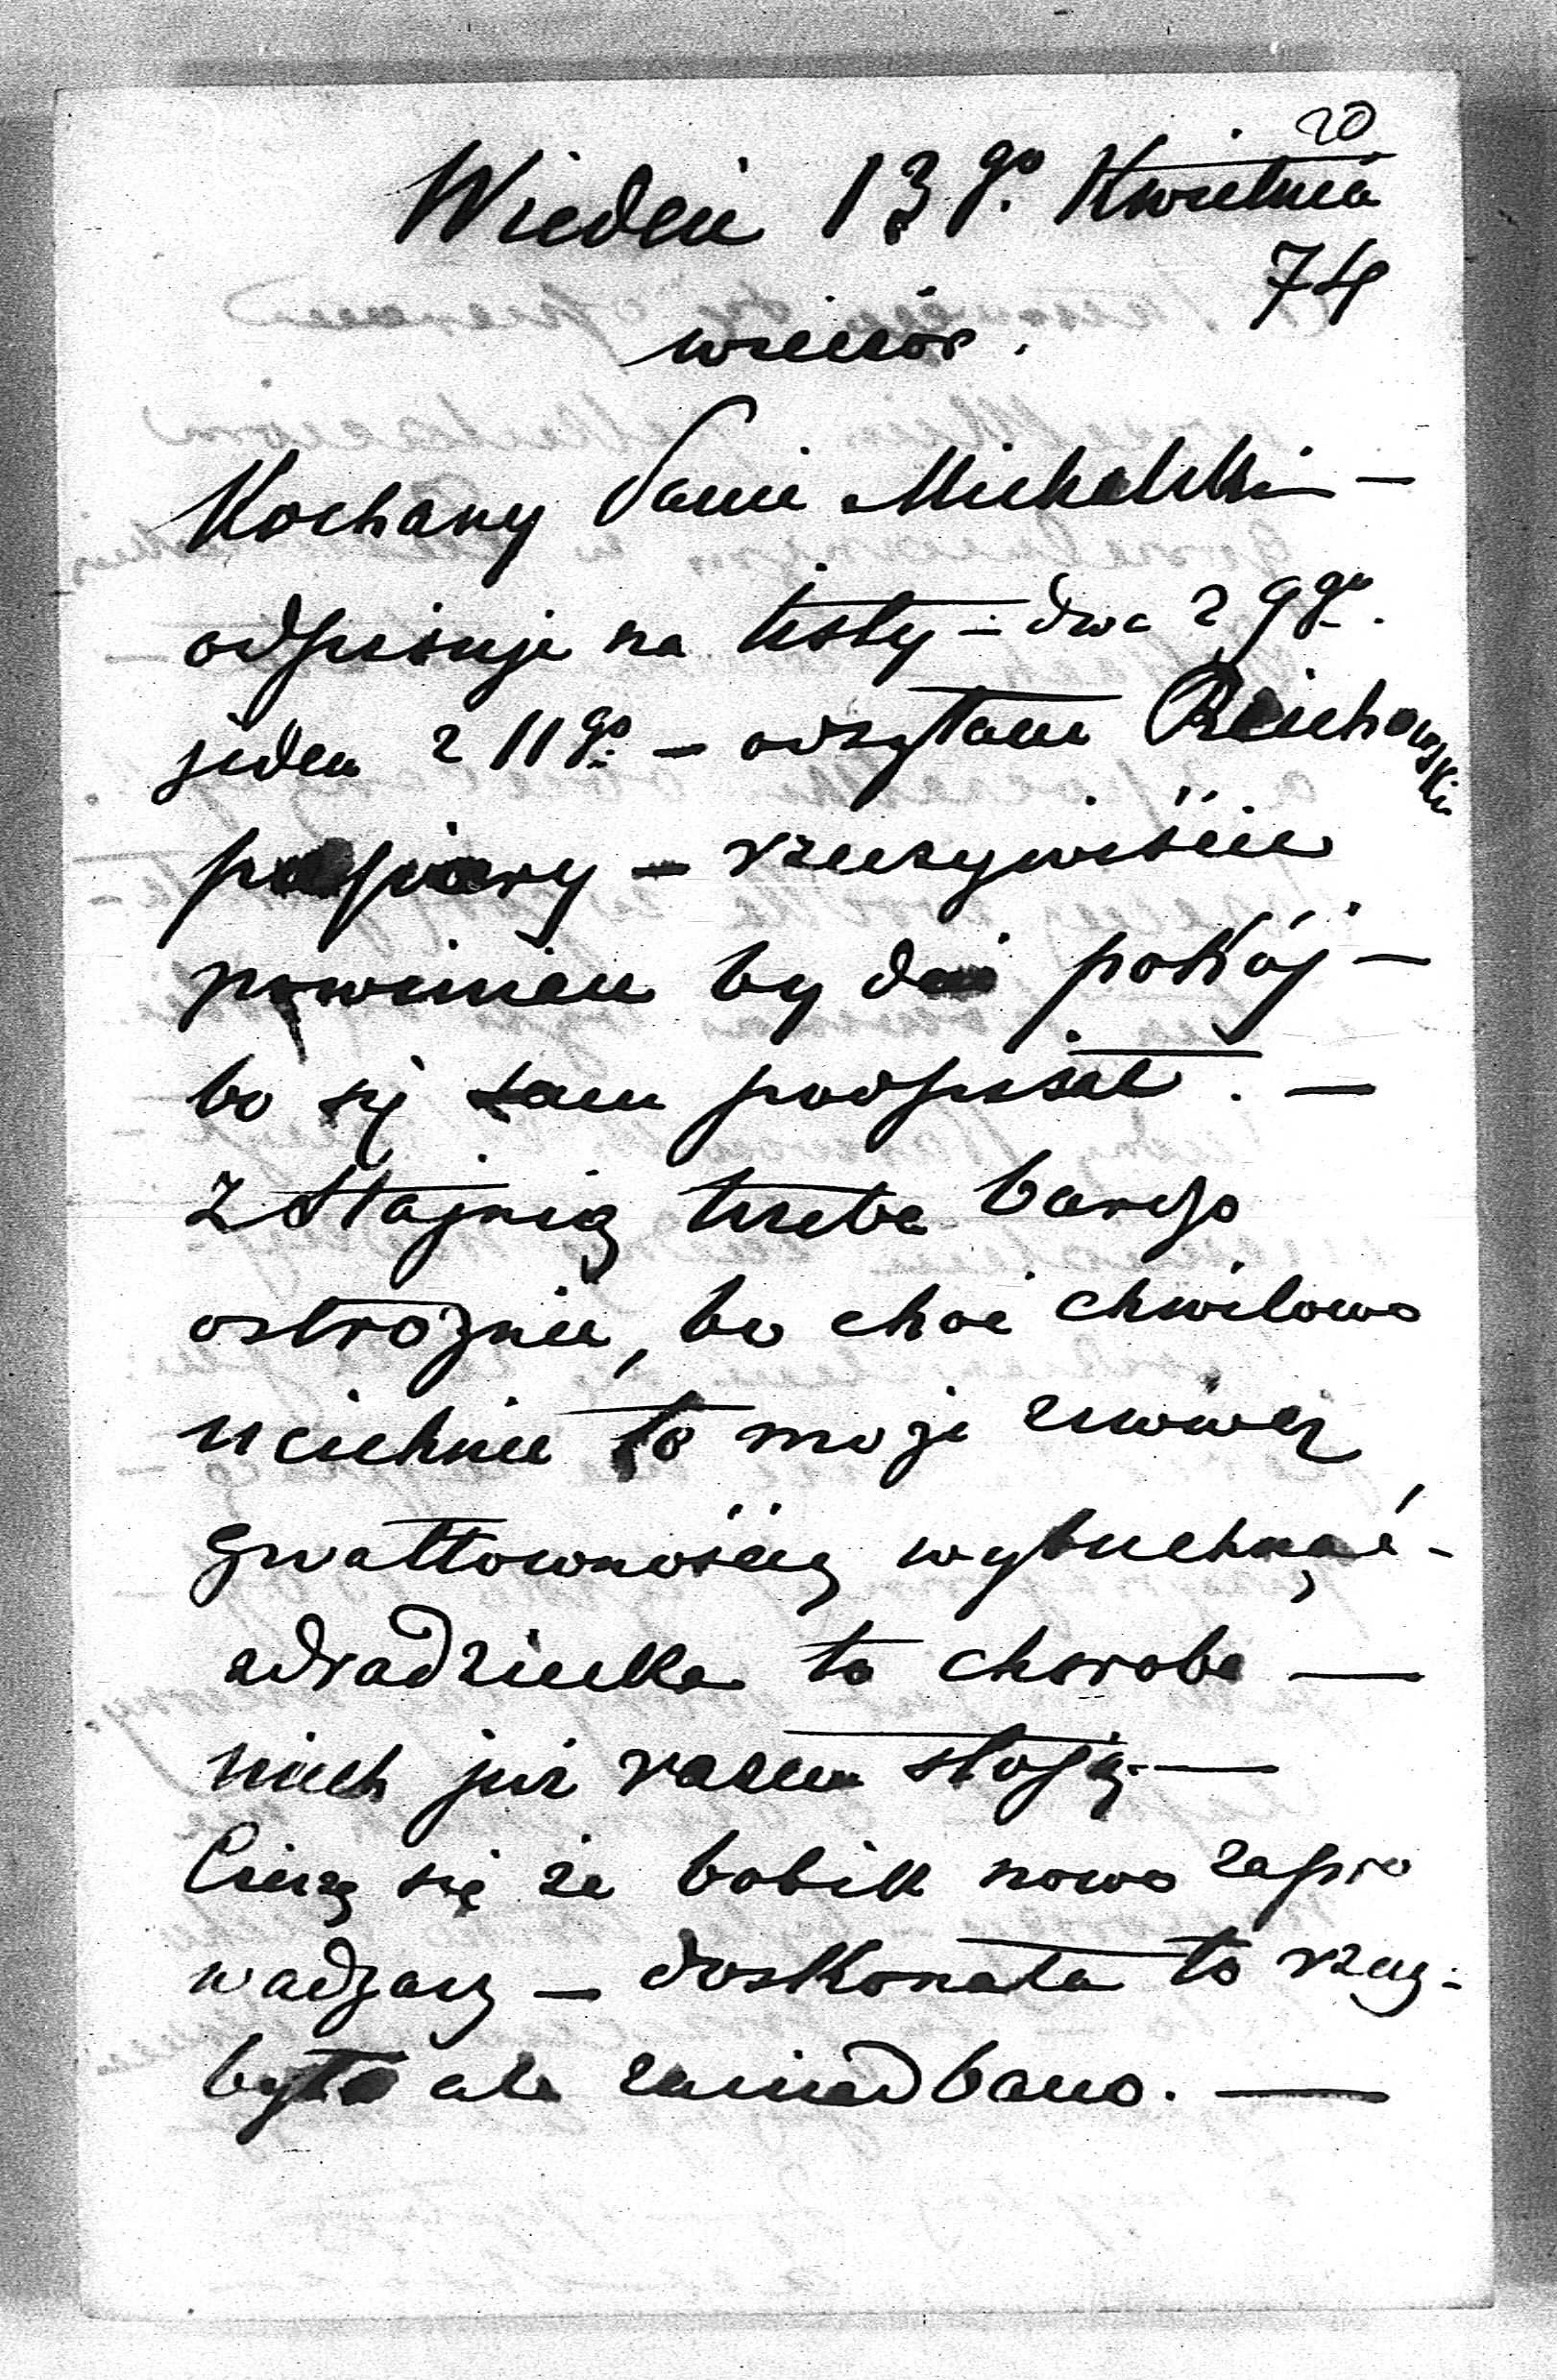 20
Wiedeń 13go Kwietnia
74
wieczór.
Kochany Panie Michalski —
odpisuję na listy — dwa z 9go.
jeden z 11go — odsyłam Reichowski
papiery — rzeczywiście
powinien by dać pokój —
bo się sam podpisał. —
Z Stajnią trzeba bardzo
ostrożnie, bo choć chwilowo
ucichnie to może znowu z
gwałtownością wybuchnąć —
zdradziecka to choroba —
niech już razem stoją. —
Cieszę się że bobik nowo zapro
wadzasz — doskonała to rzecz —
było ale zaniedbano. —